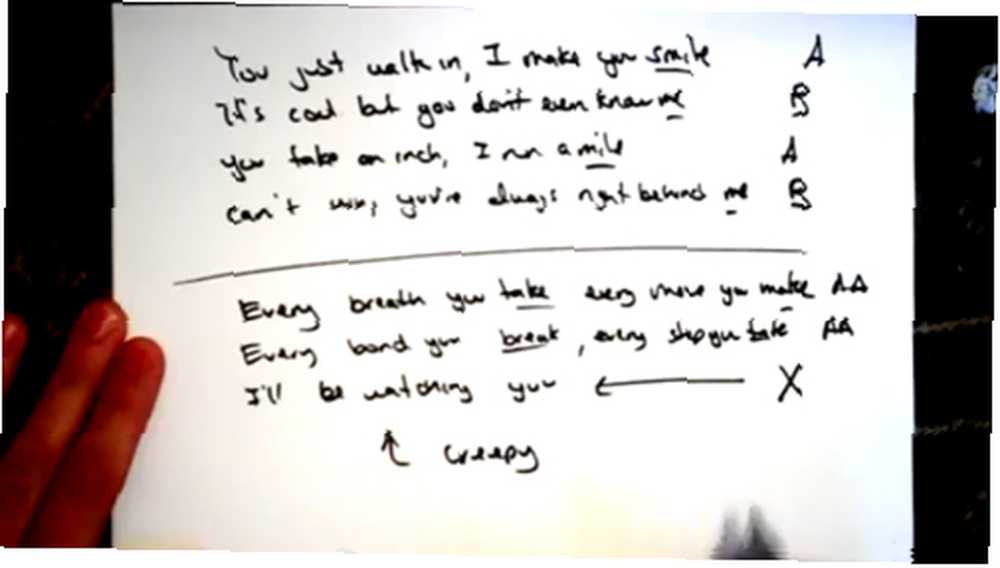 You just walk in, I make you smile A
It's cool but you don't even know me B
you take an inch, I run a mile A
can't win, you're always right behind me B
Every breath you take every move you make AA
Every bond you break, every step you take AA
I'll be watching you ← X
↑ creepy